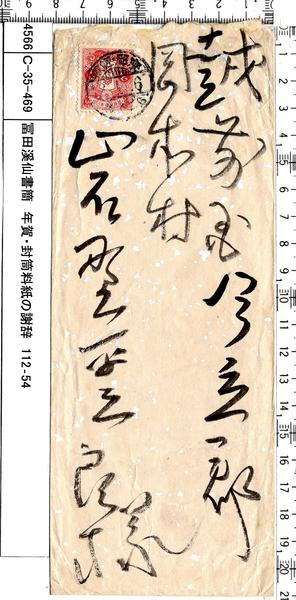 越前国今立郡
岡本村
岩野平三郎様
4566 C-35-469 冨田溪仙書簡 年賀・封筒料紙の謝辞 112-54